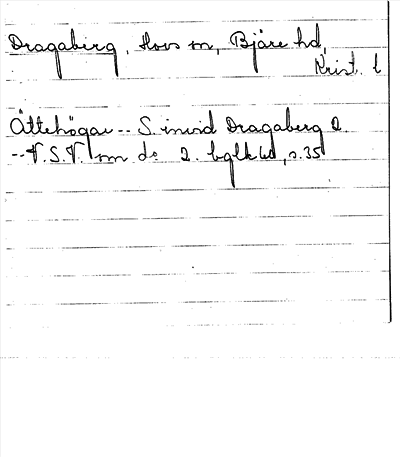 Dragaberg, Hovs sn, Bjäre hd,
Krist. l
Ättehögar -- S. invid Dragaberg 2
-- V. S. V. om do 2. bglkbd, s. 35